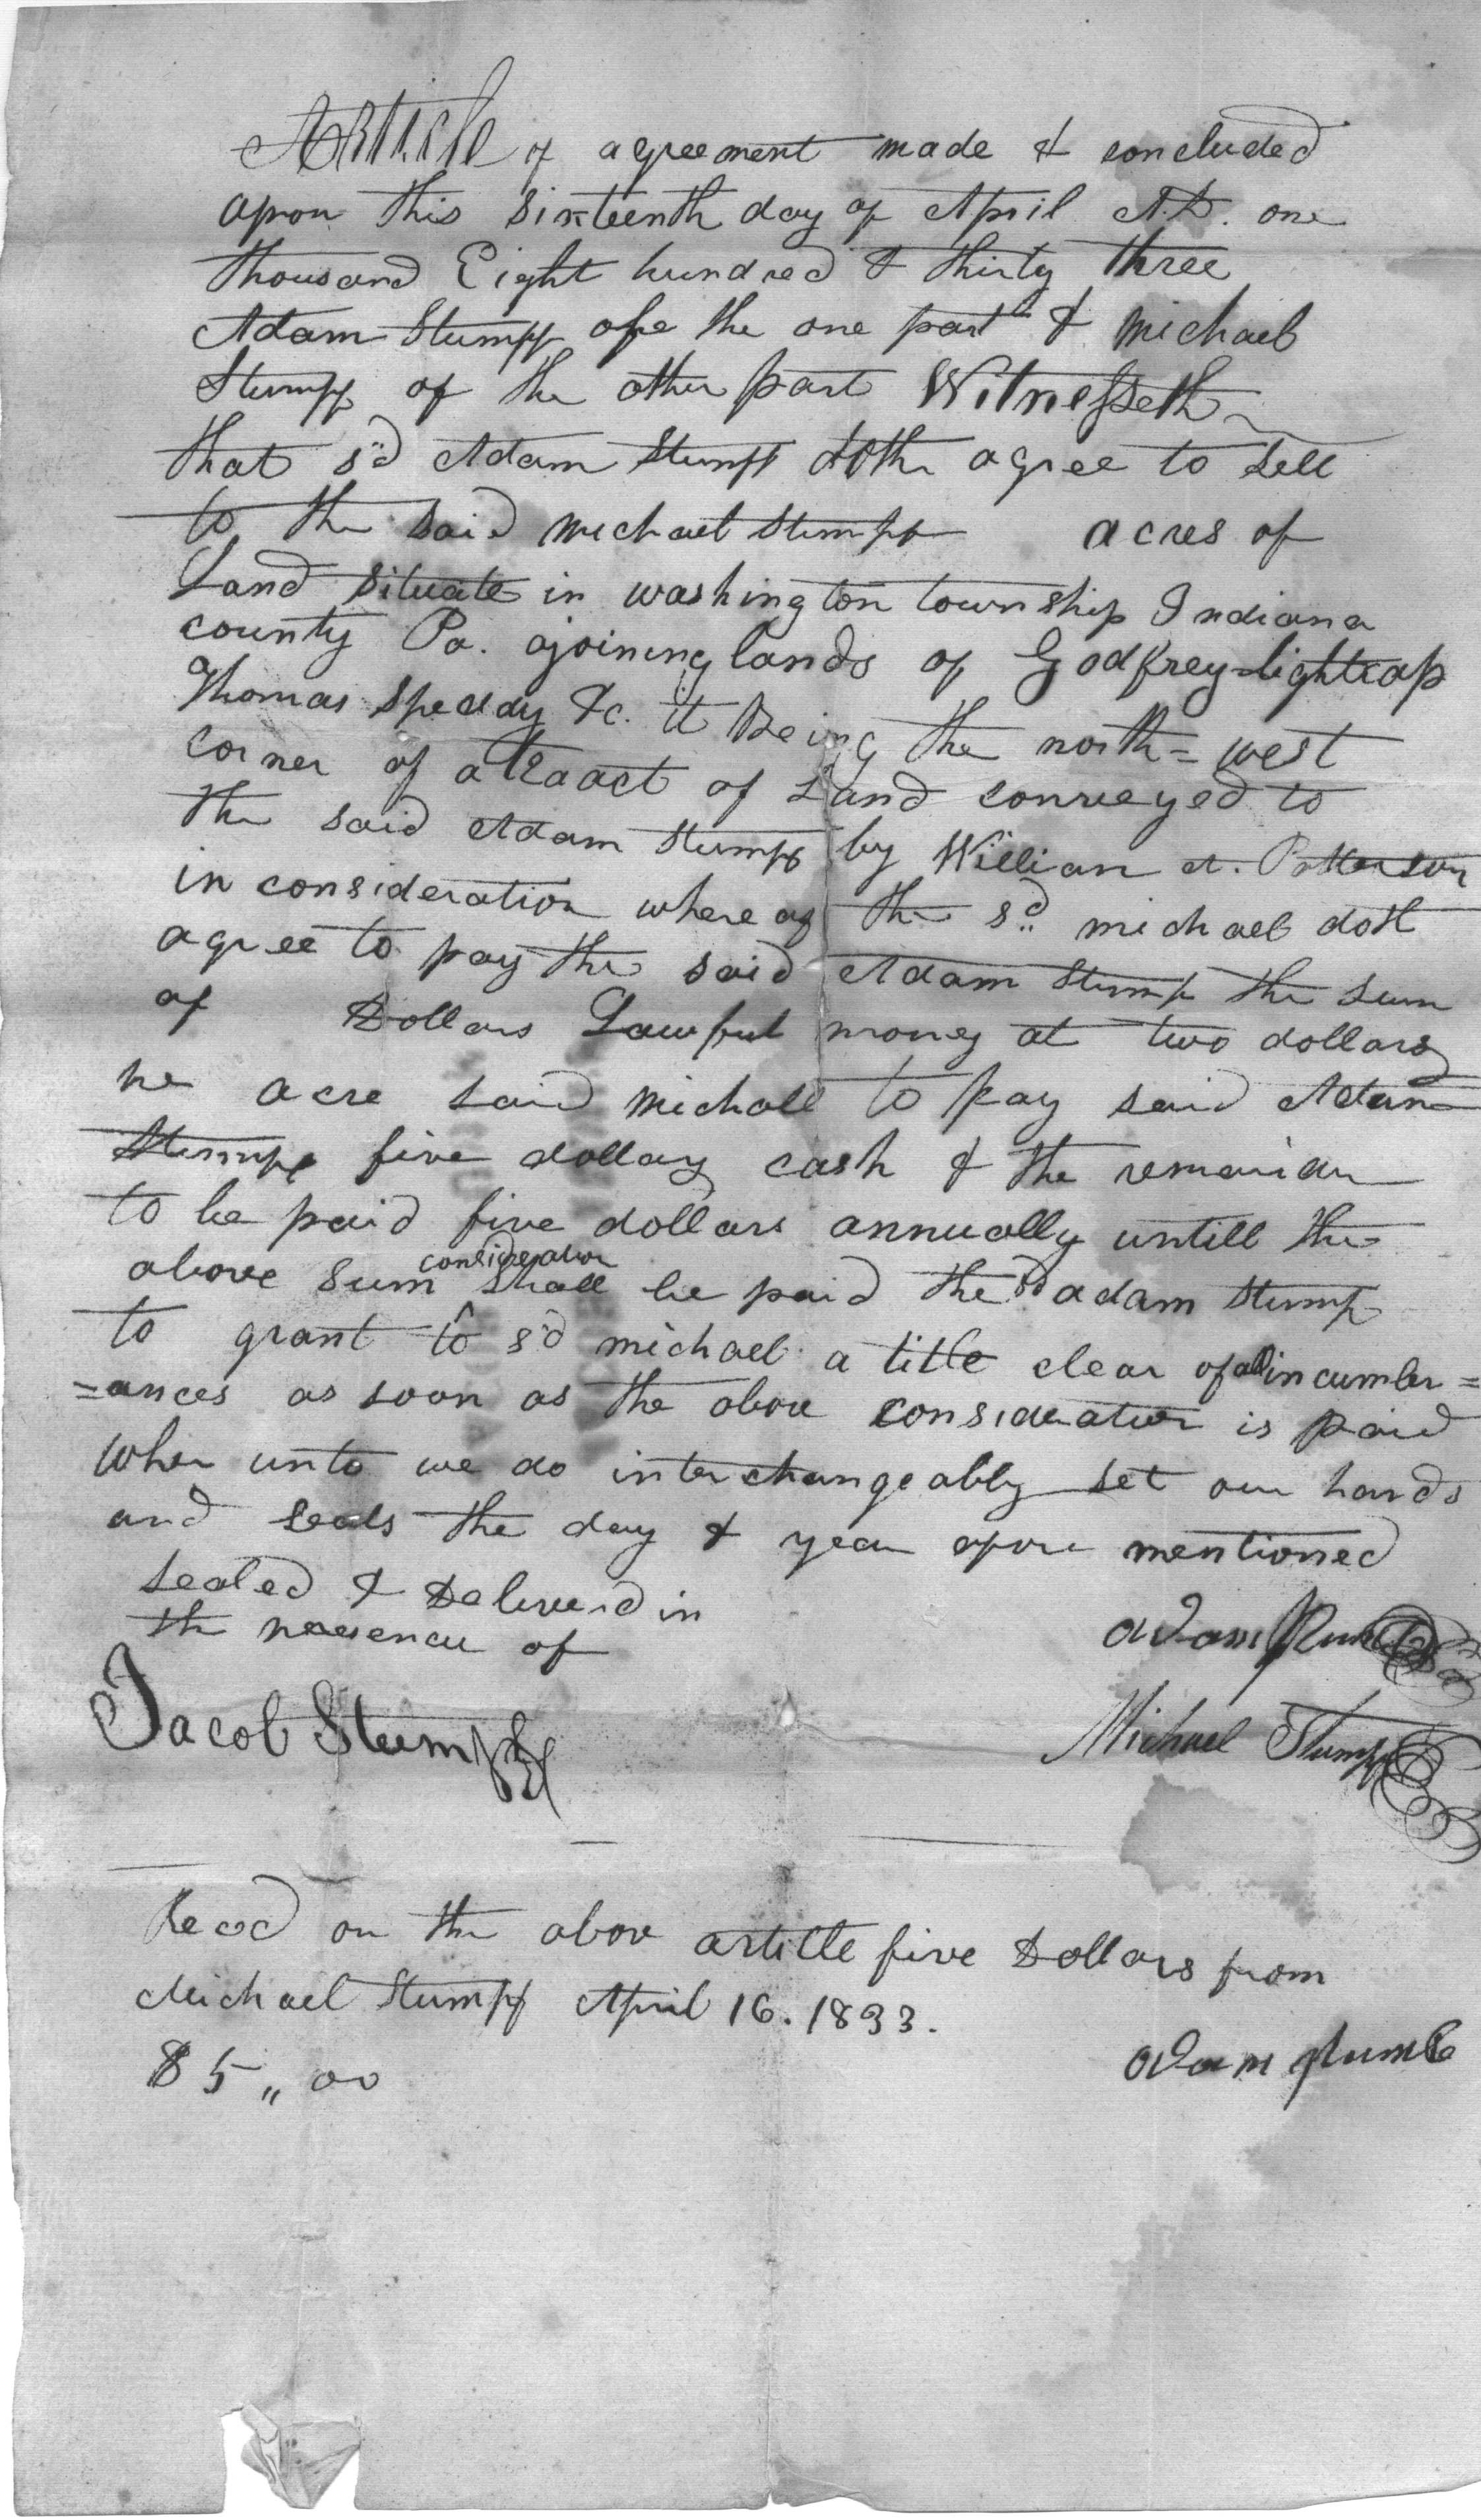 Article of agreement made & concluded
apon this sixteenth day of April A.D. one
thousand Eight hundred & thirty three
Adam Stumpf ofe the one part & Michael
Stumpf of the other part Witnesseth
that sd Adam Stumpf doth agree to sell
to the said Michael Stumpf acres of
Land situate in washington township Indiana
county Pa. ajoining lands of Godfrey lightcap
Thomas Speddy &c. it Being the north = west
corner of a traact of Land conveyed to
the said Adam Stumpf by William A. Patterson
in consideration where of the sd michael doth
agree to pay the said Adam Stumpf the sum
of Dollars Lawful money at two dollars
acre said Michall to pay said Adam
Stumpf five dollars cash & the remaidr
to be paid five dollars annually untill the
consideration
above sum shall be paid the sd adam Stumpf
to grant to sd michael a title clear of all incumber =
= ances as soon as the above consideration is paid
wher unto we do interchangeably set our hands
and seals the day & year afore mentioned
sealed & Delivered in
the presence of
adam Stumb
Jacob Stumpf
Michael Stumpf
Recd on the above artitle five Dollars from
Michael Stumpf April 16. 1833.
$ 5 ,, 00
adam Stumb